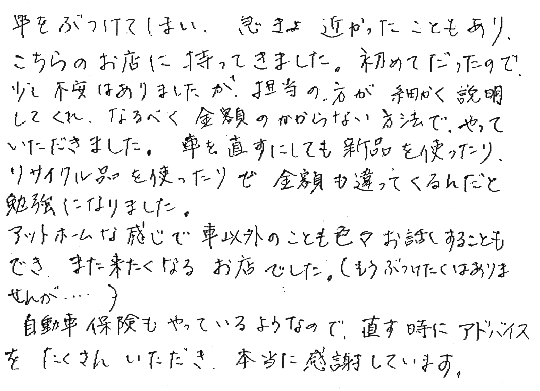 車をぶつけてしまい、急きょ近かったこともあり、
こちらのお店に持ってきました。初めてだったので、
少し不安はありましたが、担当の方が細かく説明
してくれ、なるべく金額のかからない方法で、やって
いただきました。車を直すにしても新品を使ったり、
リサイクル品を使ったりで金額も違ってくるんだと
勉強になりました。
アットホームな感じで車以外のことも色々お話しすることも
でき、また来たくなるお店でした。(もうぶつけたくはありま
せんが‥‥)
自動車保険もやっているようなので、直す時にアドバイス
をたくさんいただき、本当に感謝しています。